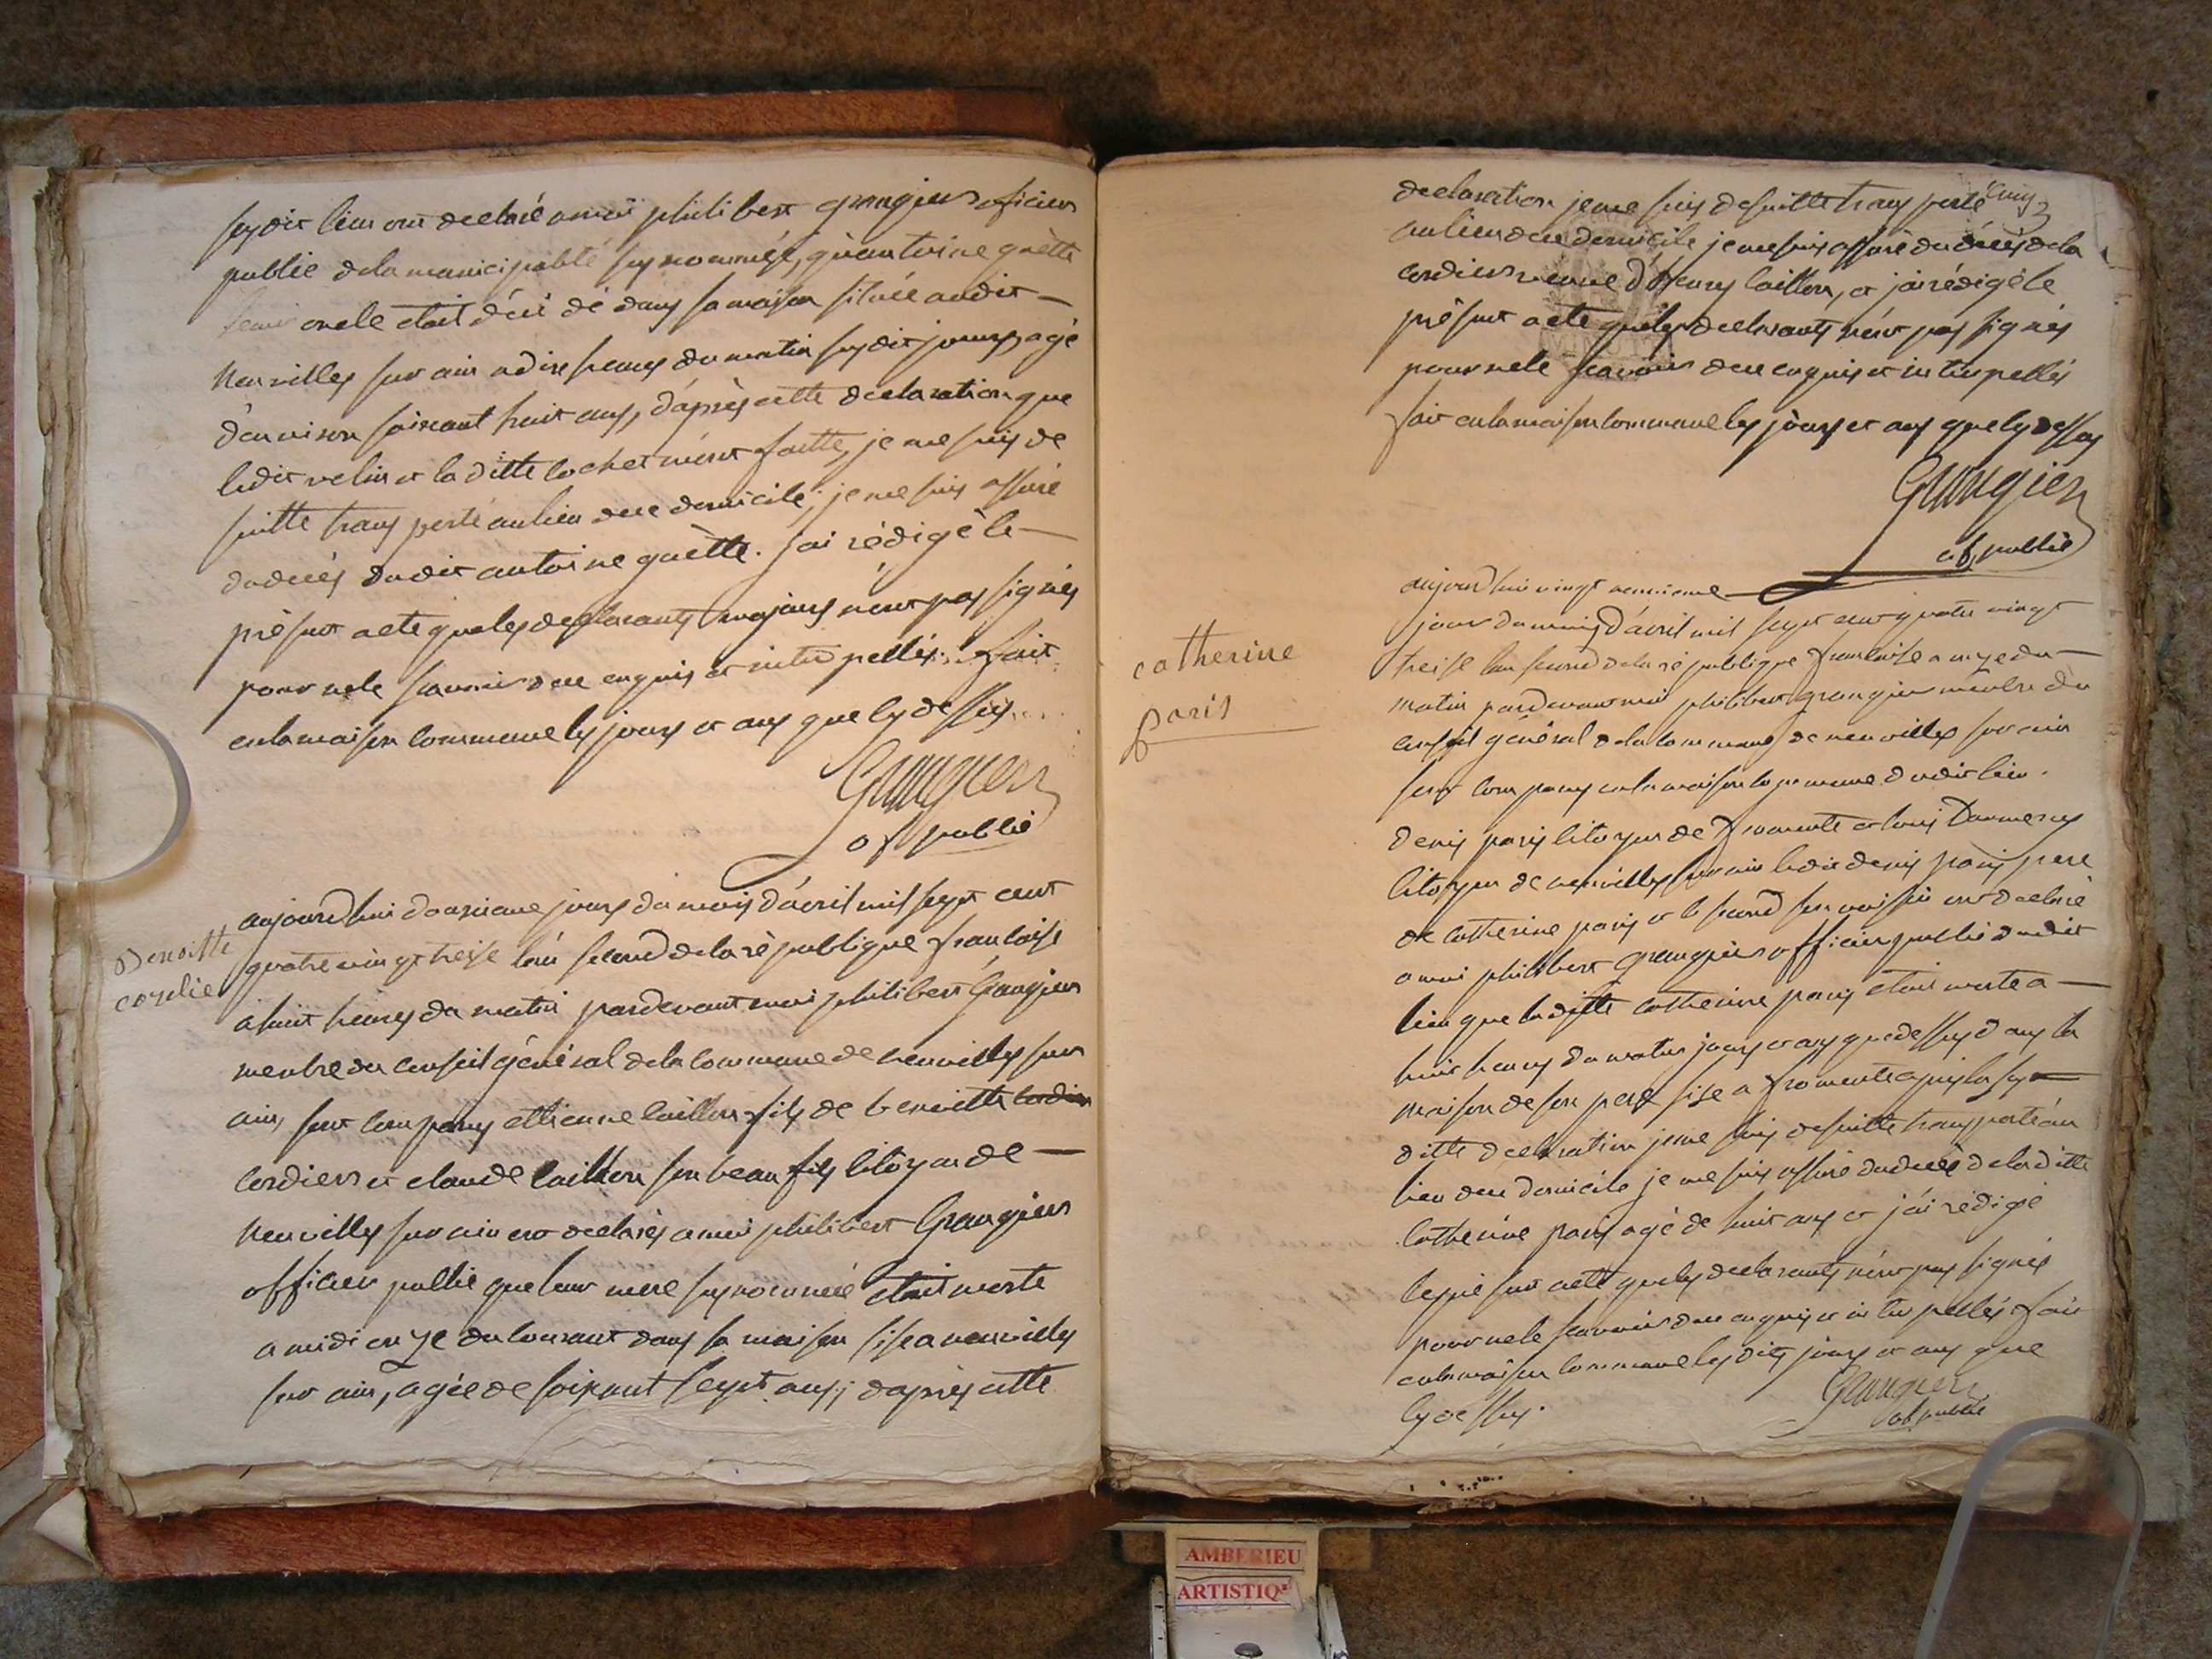 susdit lieu ont declaré a moi philibert grangier oficier
public de la municipalité susnommés, qu'antoine guètte
leur oncle etait décédé dans sa maison située audit
neuvilles sur ain a dix heures du matin susdit jours, agé
d'anviron soixant huit ans, d'après cette declaration que
ledit velin et la ditte lochet m'ont faitte, je me suis de
suitte transporté au lieu dece domicile; je me suis assuré
du décés dudit antoine guètte. j'ai rédigé le
présent acte que les declarants majeurs n'ont pas signés
pour nele scavoir dece enquis et interpellés. fait
en la maison commune les jours et ans que cy dessus
Grangier
of public
Benoitte
cordie
aujourd'hui douzieme jours du mois d'avril mil sept cent
quatre vingt treise l'an second de la république francoise
a huit heures du matin pardevant moi philibert Grangier
membre du conseil général de la commune de neuvilles sur
ain, sont comparus ettienne caillon fils de benoitte cordier
cordiers et claude caillon son beau fils citoyen de
neuvilles sur ain ont declarés a moi philibert Grangiers
officier public que leur mere susnommée etait morte
a midi onze du courant dans sa maison sise a neuvilles
sur ain, agée de soixant sept ans; d'aprés cette
declaration je me suis desuitte transporté
au lieu dece domicile je me suis assuré du décès de la
cordiers veuve d' caillon, et j'ai rédigé le
présent acte que les declarants n'ont pas signés
pour nele scavoir dece enquis et interpellés
fait en la maison commune les jours et ans que cy dessus
Grangier
of public
catherine
paris
aujourd'hui vingt neuvieme
jour du mois d'avril mil sept cent quatre vingt
treise l'an second de la république francoise a onze du
matin pardevant moi philibert grangier membre du
conseil général de la commune de neuvilles sur ain
sont comparus en la maison commune dudit lieu.
denis paris citoyen de fromente et louis
citoyen de neuvilles sur ain ledit denis paris pere
de catherine paris et le second son voisin ont declaré
a moi philibert Grangiers officier public dudit
lieu que laditte catherine paris etait morte a
huit heures du matin jours et ans que dessus dans la
maison de son pere sise a fromente apres la sus
ditte declaration je me suis desuitte transporté au
lieu dece domicile je me suis assuré du décés de la ditte
catherine paris agé de huit ans et j'ai rédigé
le présent acte que les declarants n'ont pas signés
pour nele scavoir dece enquis et interpellés fait
en la maison commune les dits jours et ans que
cy dessus.
Grangier
of public
AMBERIEU
ARTISTIQ